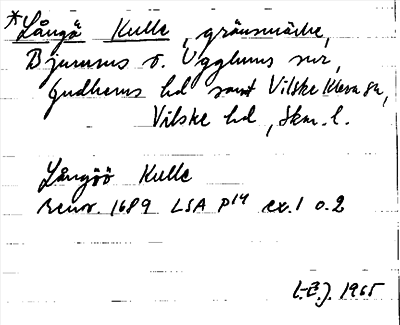 *Långö Kulle, gränsmärke,
Bjurums o. Ugglums snr,
Gudhems hd samt Vilske Kleva sn,
Vilske hd, Skar. l.
Långöö Kulle
Renov. 1689 LSA P14 ex. 1 o. 2
I.E.J. 1965